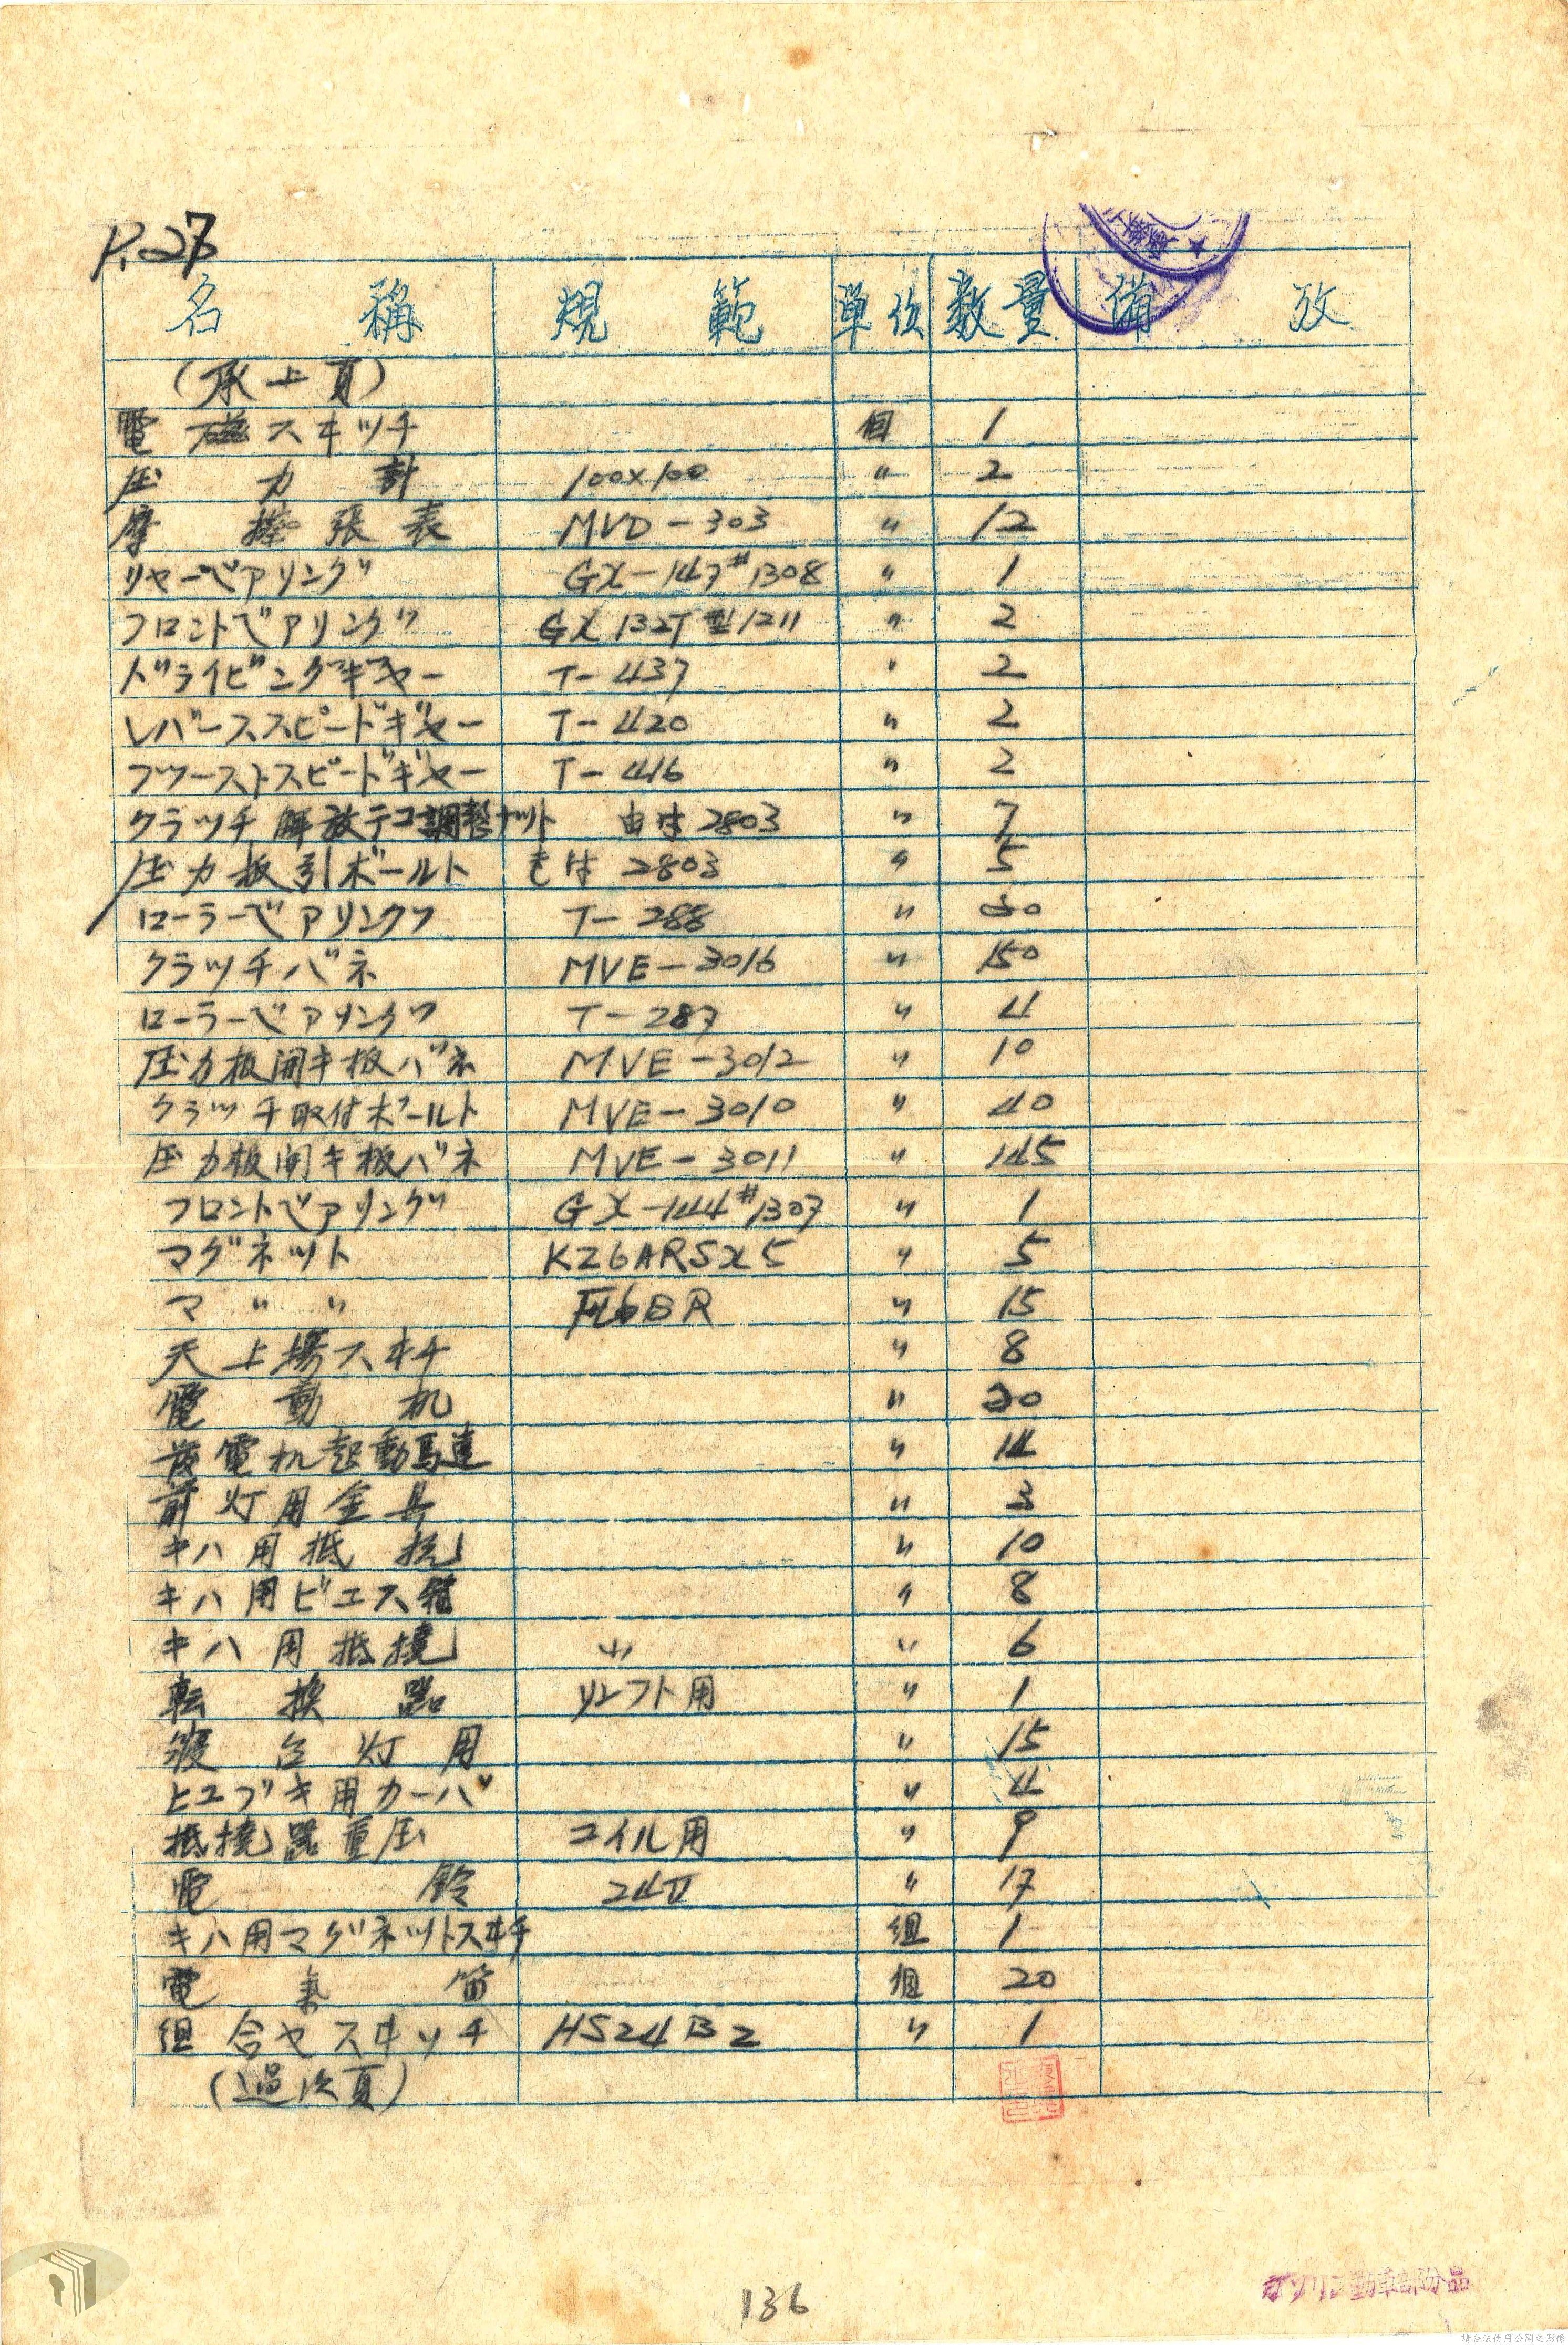 P.27
名稱 規範 單位 数量 備攷
(承上頁)
電磁スヰッチ 個 1
圧力計 100×100 〃 2
摩擦張表 MVD-303 〃 12
リヤーベアリング GX-147#1308 〃 1
フロントベアリング GX 132T型1211 〃 2
ドライビングギヤー T-437 〃 2
レバーススピードギヤー T-420 〃 2
フアーストスピードギヤー T-416 〃 2
クラッチ解放テコ調整ナット 2803 〃 7
圧力板引ボールト 2803 〃 5
ローラーベアリング T-288 〃
クラッチバネ MVE-3016 〃 150
ローラーベアリング T-287 〃 4
圧力板開キ板バネ MVE-3012 〃 10
クラッチ取付ボールト MVE-3010 〃 40
圧力板開キ板バネ MVE-3011 〃 145
フロントベアリング GX-144#1307 〃 1
マグネット KZ6ARSX5 〃 5
マ〃〃 6BR 〃 15
天上場スヰチ 〃 8
電動机 〃 20
発電机起動馬達 〃 14
前灯用金具 〃 3
キハ用抵抗 〃 10
キハ用ビエス箱 〃 8
キハ用抵撓 小 〃 6
転換器 リレフト用 〃 1
寢台灯用 〃 15
ヒユブキ用カーバ 〃 4
抵撓器重圧 コイル用 〃 9
電鈴 24V 〃 17
キハ用マグネットスヰチ 組 1
電氣笛 個 20
組合セスヰッチ HS24B2 〃 1
(過次頁)
136
ガソリン動車部份品
請合法使用公開之影像